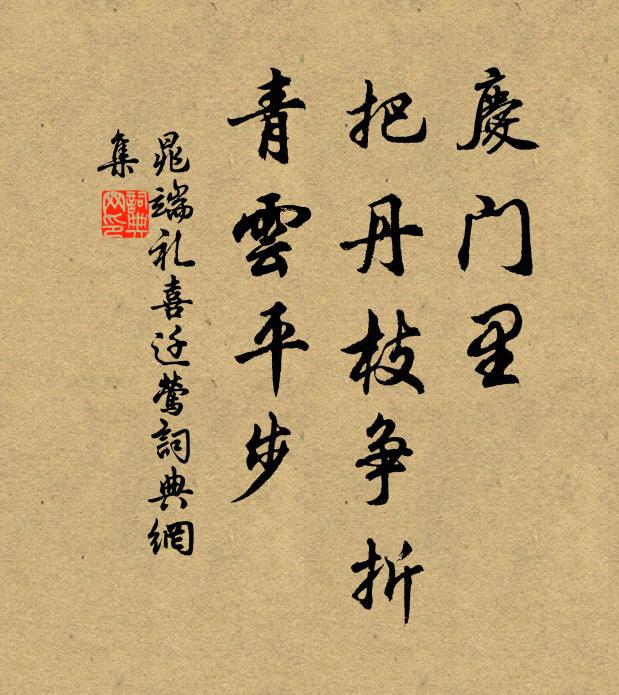 慶门里
把丹枝争折
青雲平步
晁端礼喜迁莺詞典網
集
詞典
网印